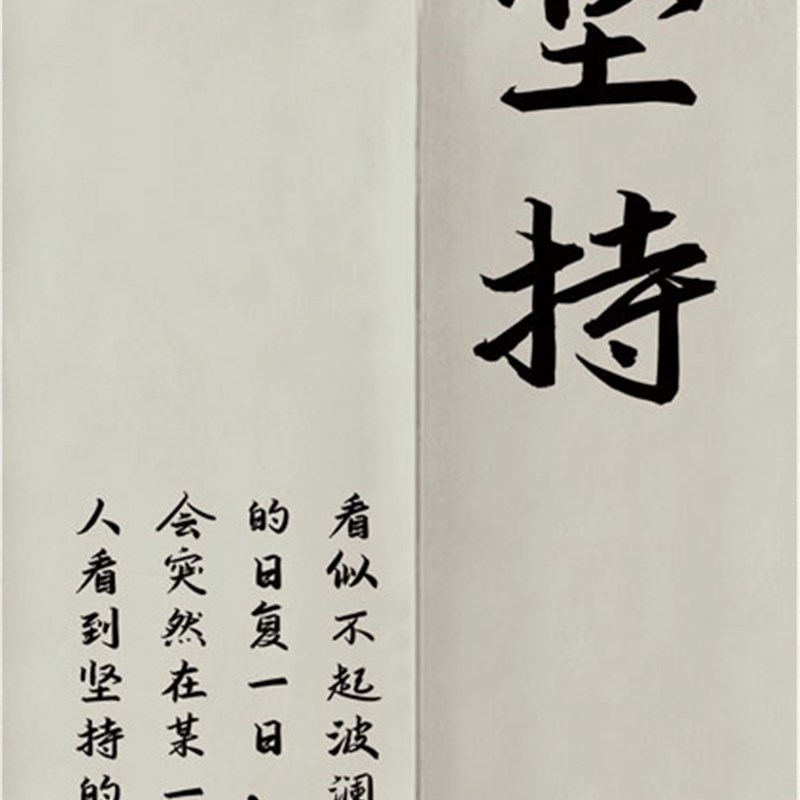 坚持
看似不起波澜
的日复一日，
会突然在某一
人看到坚持的